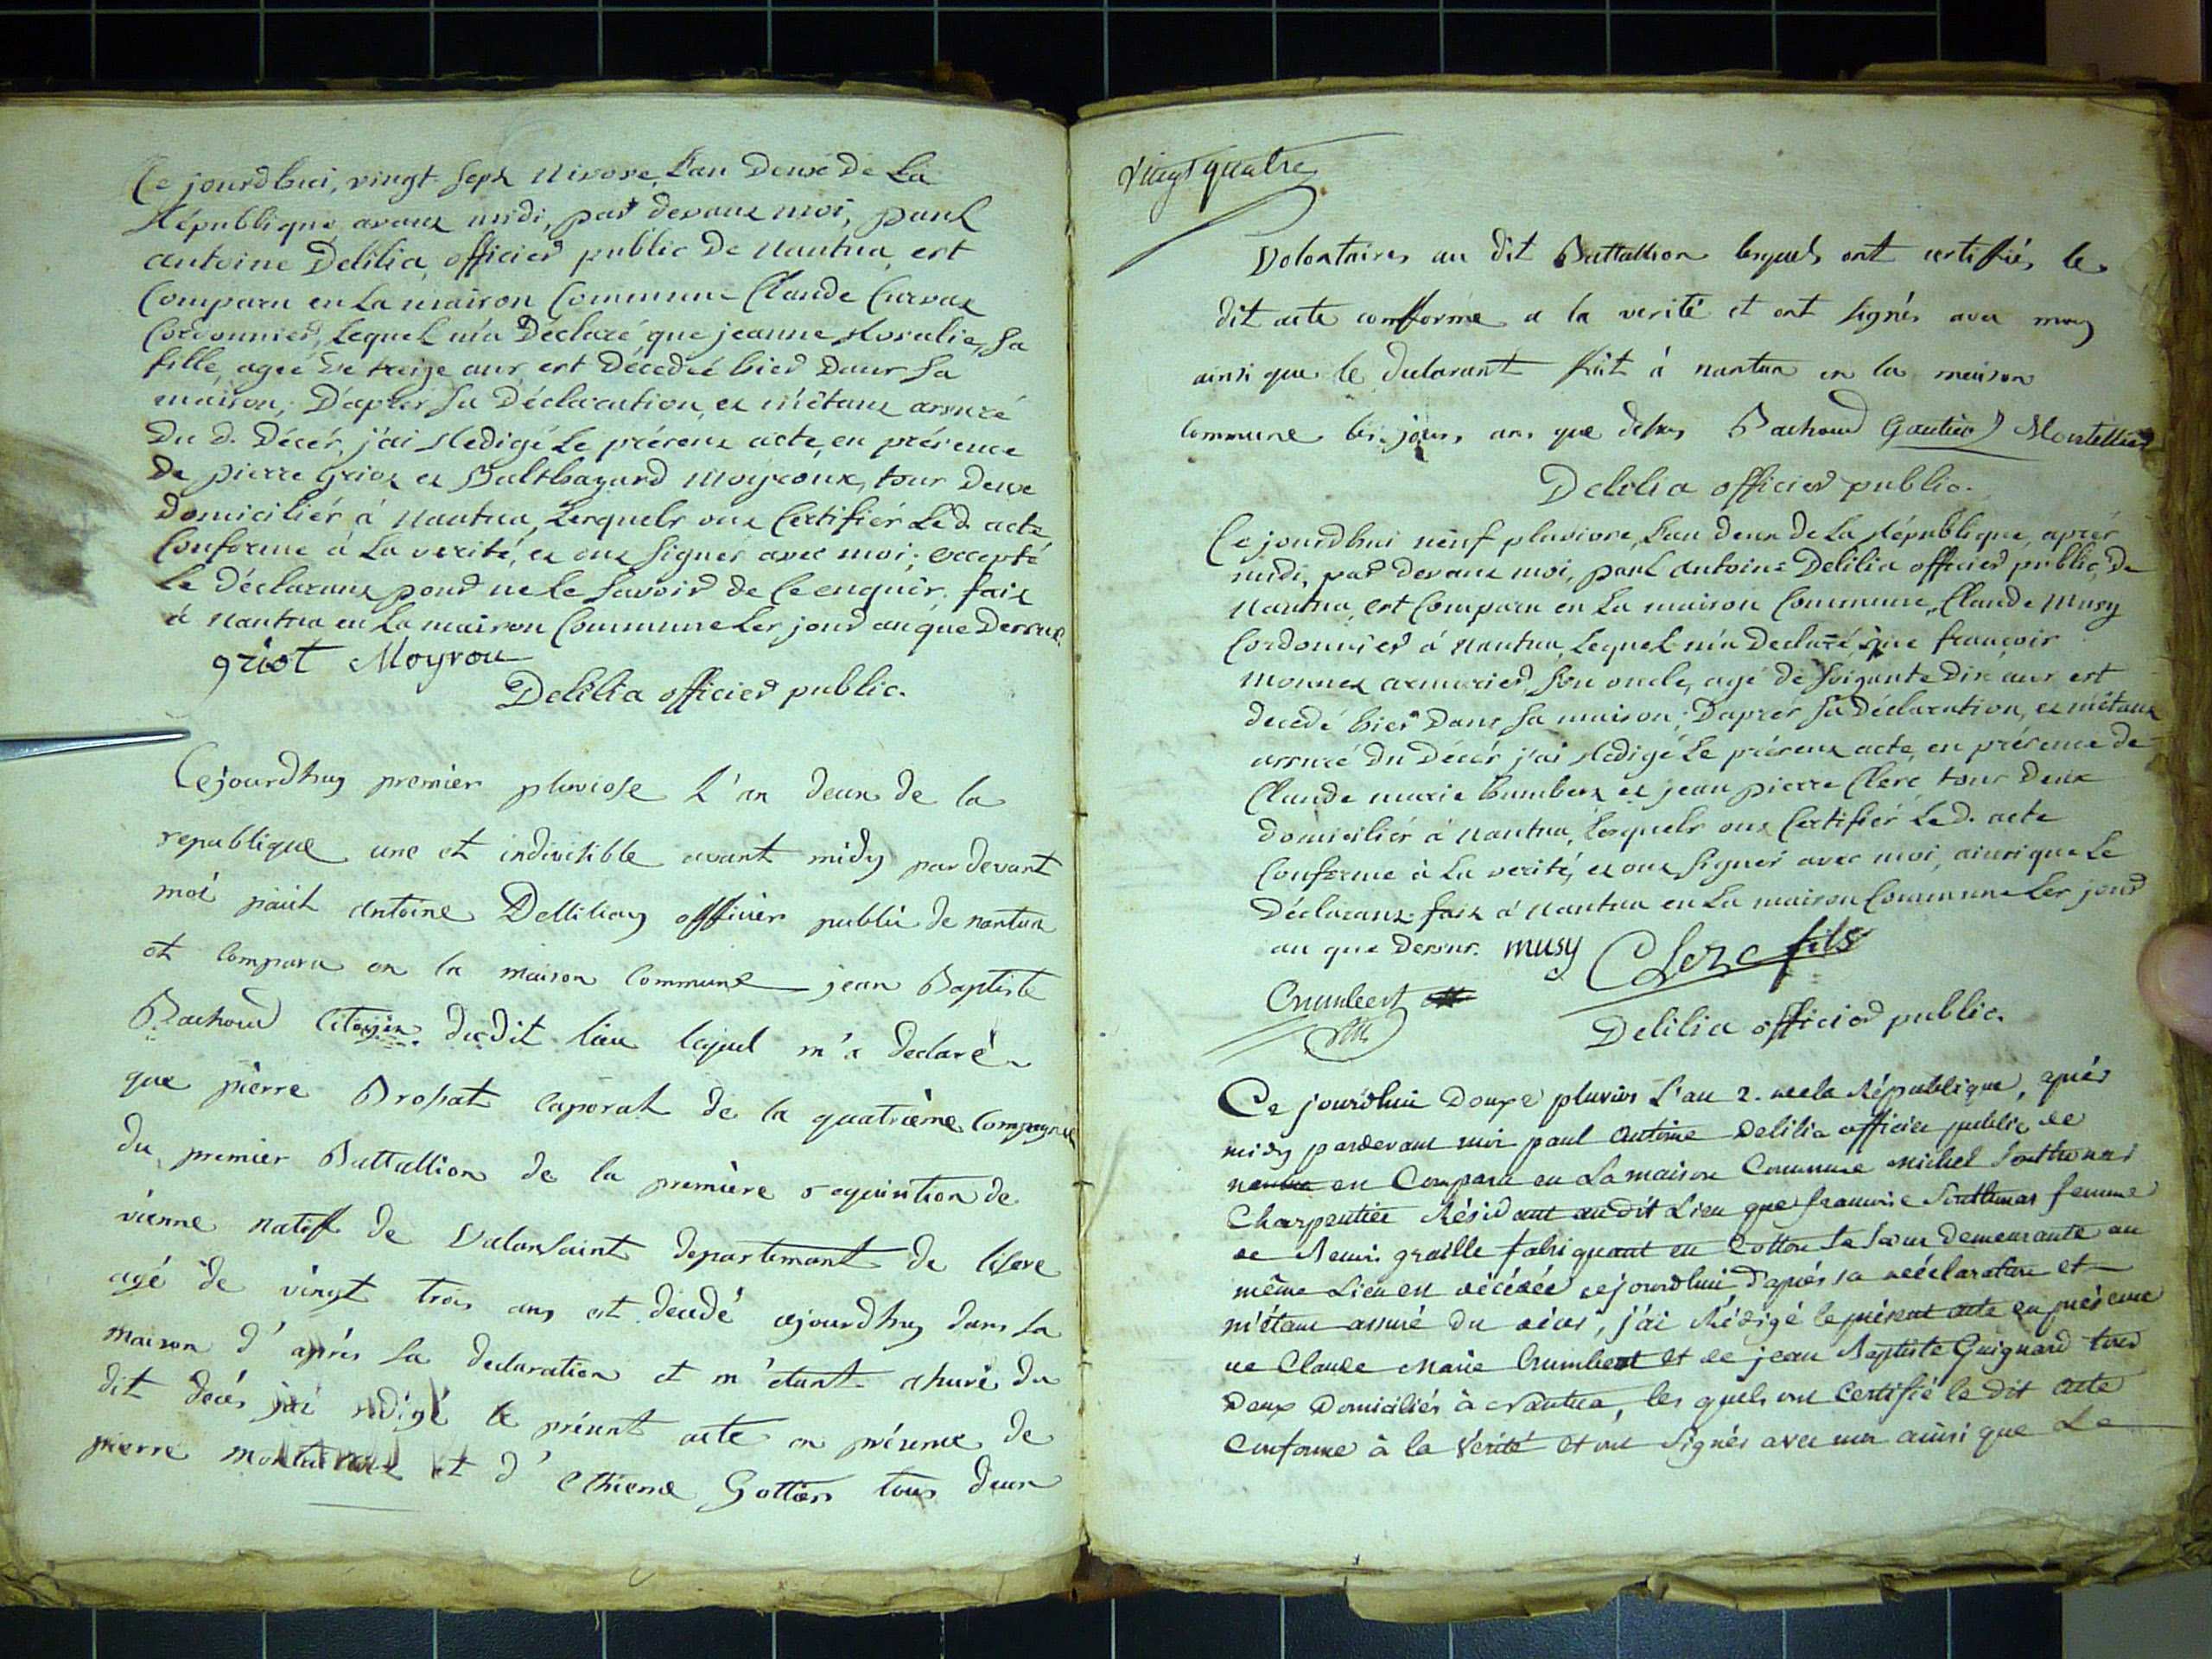 Ce jourdhui, vingt sept Nivose, L'an Deux De La
République avant midi, par devant moi, paul
antoine Delilia, officier public De Nantua, est
Comparu en La maison Commune Claude Curvat
Cordonnier, Lequel m'a Déclaré, que jeanne Rosalie, sa
fille, agée de treize ans, est Décédée hier Dans sa
maison; D'après sa Déclaration, et m'étant assuré
Du d. Décés, j'ai Redigé Le présent acte, en présence
De pierre Griot et Balthazard Moyroux, tous Deux
Domiciliés à Nantua, Lesquels ont Certifiés Le d. acte
Conforme à La verité, et ont signés avec moi; excepté
Le Déclarant pour ne le savoir de ce enquis. fait
à Nantua en La maison Commune Les jour an que Dessus
griot Moyrou
Delilia officier public.
Cejourdhuy premier pluviose L'an deux de la
republique une et indivisible avant midy par devant
moi paul Antoine Delliliay officier public de nantua
et comparu en la maison commune jean Baptiste
Bachoud Citoyen dudit lieu lequel m'a declaré
que pièrre Brossat caporal de la quatrieme Compagnie
du premier Battallion de la première requisition de
vienne natif de Valonsaint departement de lisere
agé de vingt trois ans est décédé cejourdhuy dans sa
maison d'après sa declaration et m'étant assuré du
dit decés jai redigé le présent acte en présence de
pierre et d'ethienne Gottier tous deux
vingt quatre
Volontaires au dit Battallion lesquels ont certifiés le
dit acte comforme a la verité et ont signés avec moy
ainsi que le declarant fait à nantua en la maison
commune les jours, ans que dessus Bachoud Gautier Montellier
Delilia officier public.
Ce jourdhui neuf pluviose, L'an deux de La République, après
midi, par devant moi, paul antoine Delilia officier public, De
Nantua, est Comparu en La maison Commune, Claude Musy
Cordonnier à Nantua, Lequel m'a Declaré, que françois
Monnet armurier, son oncle, agé de soixante dix ans est
decedé hier Dans sa maison; D'après sa Déclaration, et m'étant
assuré Du Décés j'ai Redigé Le présent acte, en présence de
Claude marie humbert et jean pierre Clerc, tous deux
domiciliés à Nantua, Lesquels ont Certifiés Le d. acte
Conforme à La verité, et ont signés avec moi, ainsi que Le
Déclarant. fait à Nantua en La maison Commune Les jour
an que Dessus. musy Clerc fils
Cmumbert
Delilia officier public.
Ce jourdhui Douze pluvios L'an 2. de la République, après
midy pardevant moi paul Antoine Delilia officier public de
nantua est Comparu en La maison Commune Michel Sonthonnas
Charpentier Résidant au dit Lieu que françoise Sonthonas femme
de Remi graille fabriquant en Cotton Sa Sœur Demeurante au
même Lieu est décédée cejourdhui, d'après sa déclaration et
m'étant assuré du décés, j'ai Rédigé le présent acte en présence
de Claude Marie humbert et de jean Baptiste Guignard tous
Deux Domiciliés à Nantua, les quels ont Certifié le dit acte
Conforme à la Vérité et ont Signés avec moi ainsi que Le